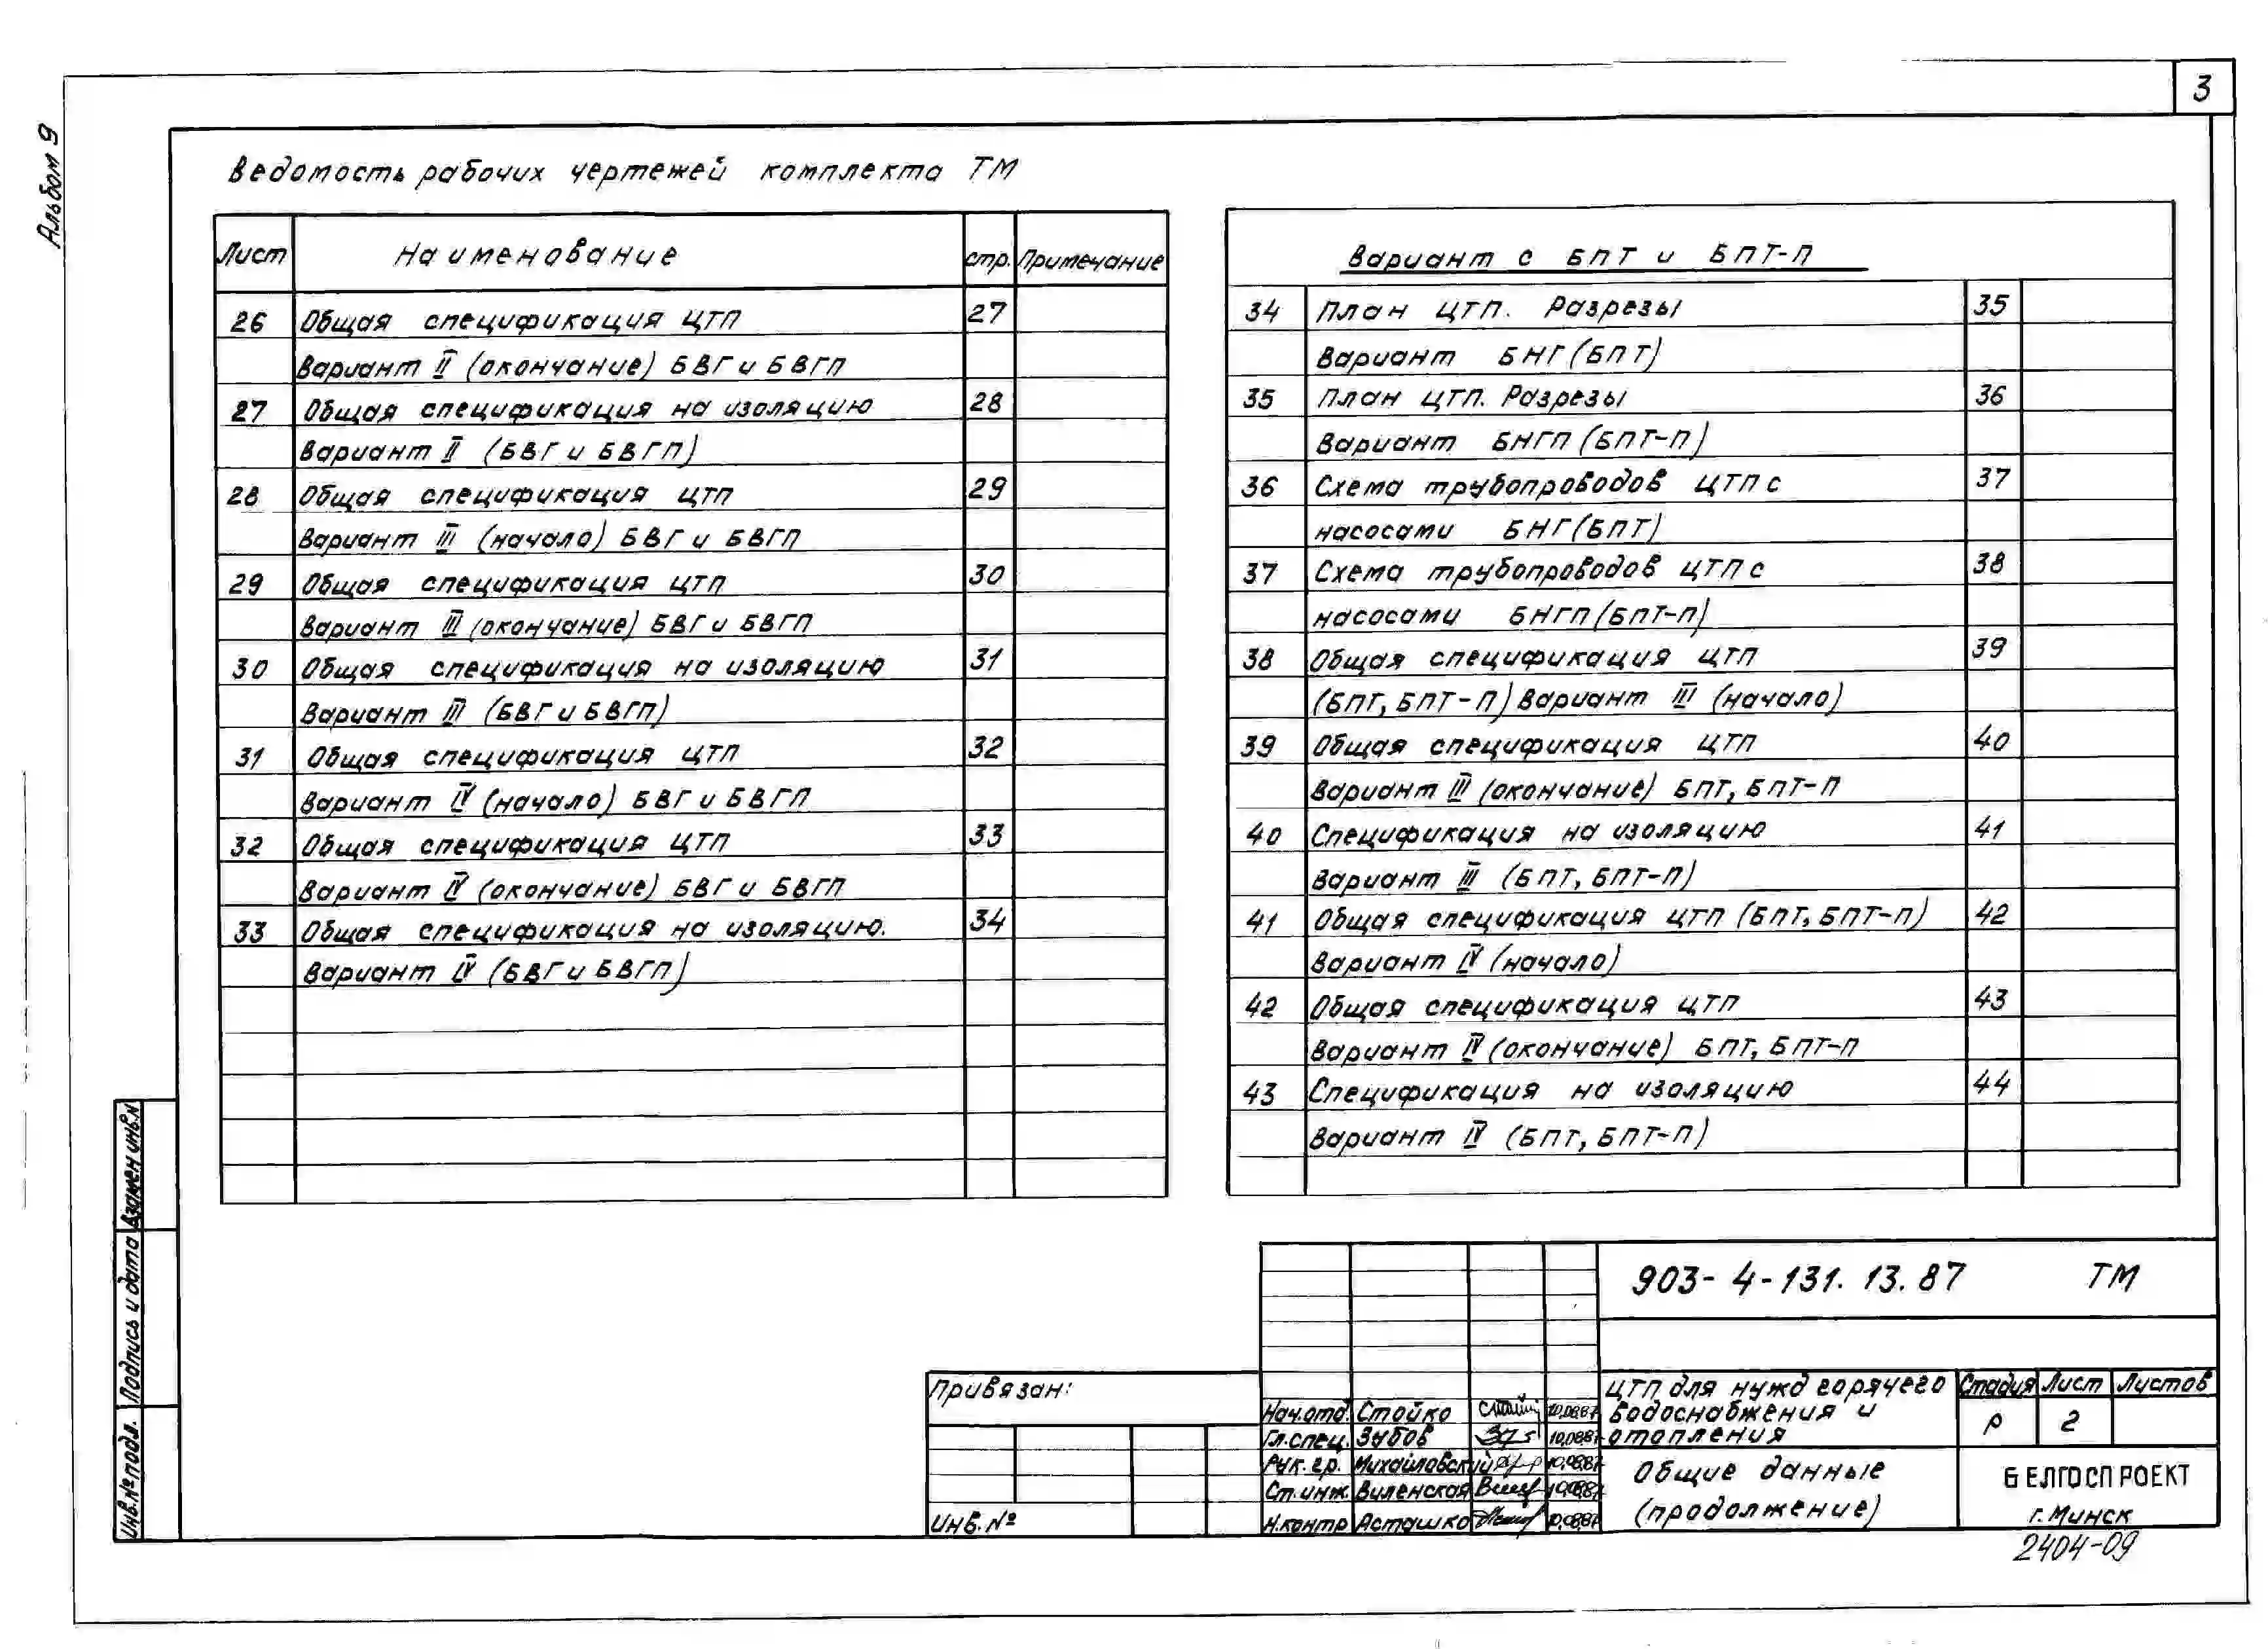 3
Альбом 9
Ведомость рабочих чертежей комплекта ТМ
Лист Наименование стр. Примечание
26 Общая спецификация ЦТП 27
Вариант II (окончание) БВГ и БВГП
27 Общая спецификация на изоляцию 28
Вариант II (БВГ и БВГП)
28 Общая спецификация ЦТП 29
Вариант III (начало) БВГ и БВГП
29 Общая спецификация ЦТП 30
Вариант III (окончание) БВГ и БВГП
30 Общая спецификация на изоляцию 31
Вариант III (БВГ и БВГП)
31 Общая спецификация ЦТП 32
Вариант IV (начало) БВГ и БВГП
32 Общая спецификация ЦТП 33
Вариант IV (окончание) БВГ и БВГП
33 Общая спецификация на изоляцию. 34
Вариант IV (БВГ и БВГП)
Вариант с БПТ и БПТ-П
34 План ЦТП. Разрезы 35
Вариант БНГ (БПТ)
35 План ЦТП. Разрезы 36
Вариант БНГП (БПТ-П)
36 Схема трубопроводов ЦТП с 37
насосами БНГ (БПТ)
37 Схема трубопроводов ЦТП с 38
насосами БНГП (БПТ-П)
38 Общая спецификация ЦТП 39
(БПТ, БПТ-П) Вариант III (начало)
39 Общая спецификация ЦТП 40
Вариант III (окончание) БПТ, БПТ-П
40 Спецификация на изоляцию 41
Вариант III (БПТ, БПТ-П)
41 Общая спецификация ЦТП (БПТ, БПТ-П) 42
Вариант IV (начало)
42 Общая спецификация ЦТП 43
Вариант IV (окончание) БПТ, БПТ-П
43 Спецификация на изоляцию 44
Вариант IV (БПТ, БПТ-П)
Инв.№ подл. Подпись и дата Взамен инв.N
Привязан:
Инв. №
Нач.отд. Стойко 10.08.87
Гл.спец. Зубов 10.08.87
Рук. гр. Михайловский 10.08.87
Ст.инж. Виленская 10.08.87
Н.контр Асташко 10.08.87
903-4-131.13.87 ТМ
ЦТП для нужд горячего
водоснабжения и
отопления
Стадия Лист Листов
Р 2
Общие данные
(продолжение)
БЕЛГОСПРОЕКТ
г. Минск
2404-09